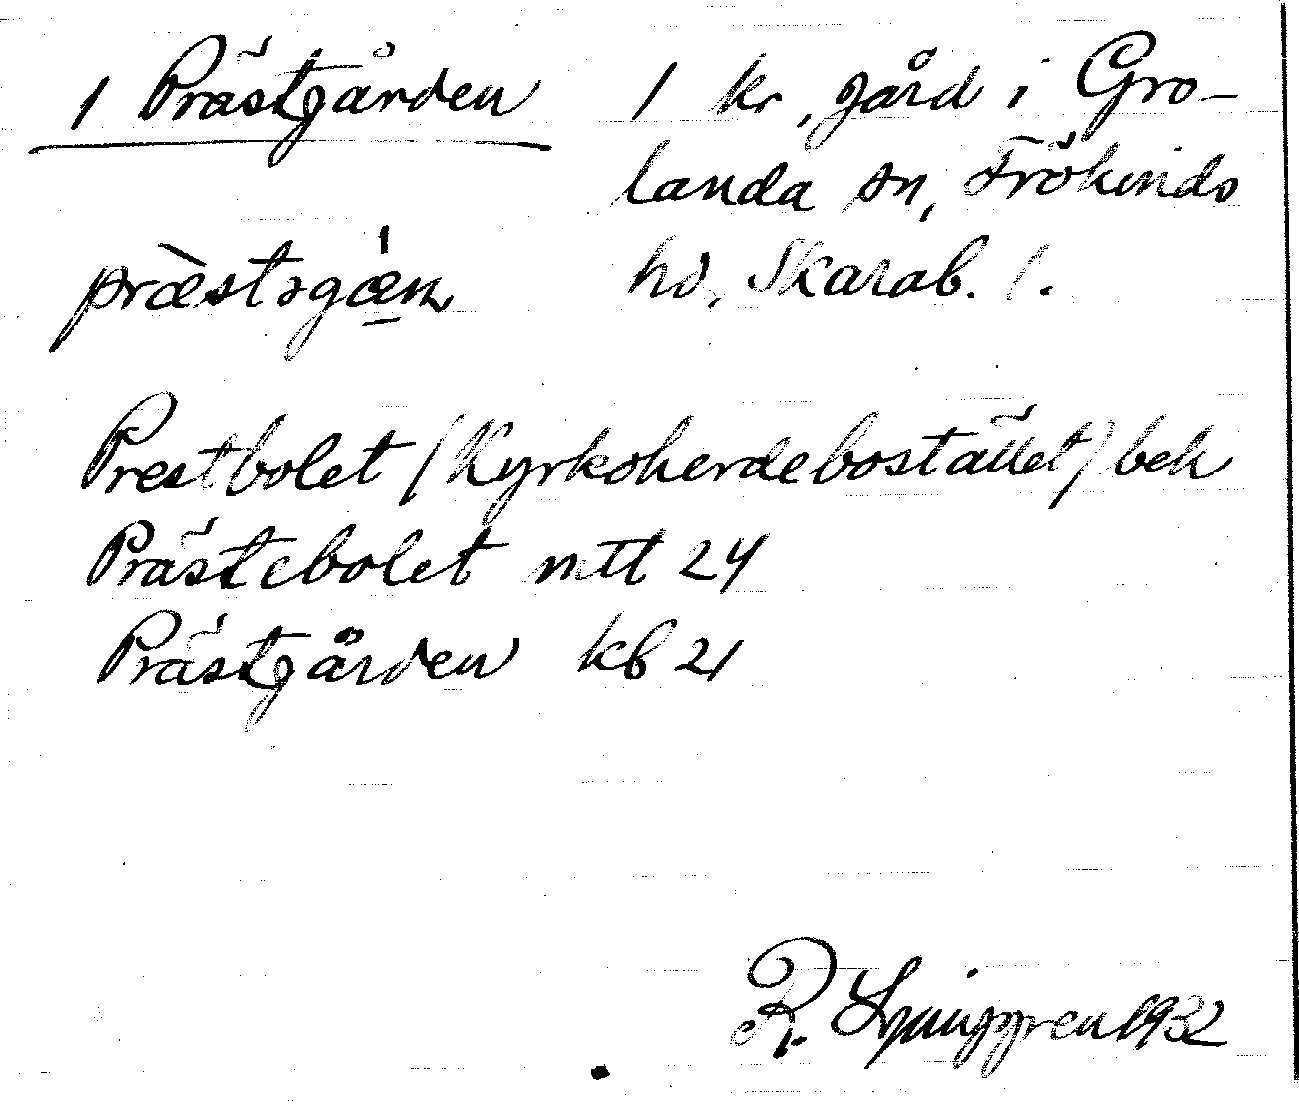 1 Prästgården
1 kr. gård i Gro-
landa sn, Frökinds
hd, Skarab. l.
præstəgɑ̀ṇ
Prestbolet (Kyrkoherdebostället) beh
Prästebolet mtl 24
Prästgården kb 21
R. Ljunggren 1932